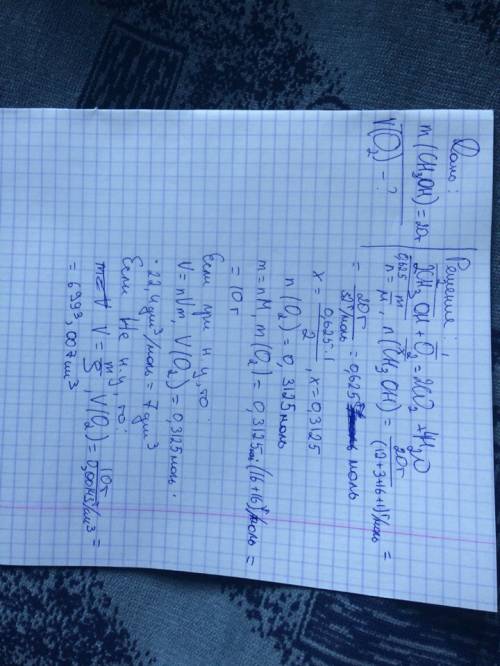 Дано:
m(CH₃OH)=20г
V(O₂) - ?
Решение:
2CH₃OH + O₂ = 2CO₂ + 4H₂O
0,625
n = m/M, n(CH₃OH) = 20г/(12+3+16+1)г/моль =
= 20г/32г/моль = 0,625 моль
x = 0,625·1/2, x = 0,3125
n(O₂) = 0,3125 моль
m = nM, m(O₂) = 0,3125 моль·(16+16)г/моль =
= 10г
Если при н.у, то:
V = nVm, V(O₂) = 0,3125 моль·
·22,4 дм³/моль = 7 дм³
Если не н.у, то:
V = m/ρ, V(O₂) = 10г/0,00143г/см³ =
= 6993,007см³